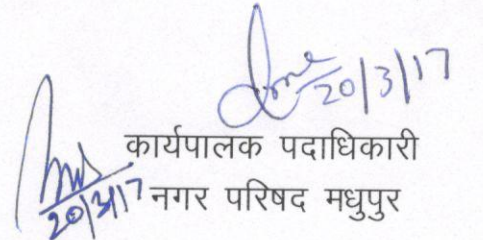 20/3/17
कार्यपालक पदाधिकारी
20/3/17 नगर परिषद मधुपुर